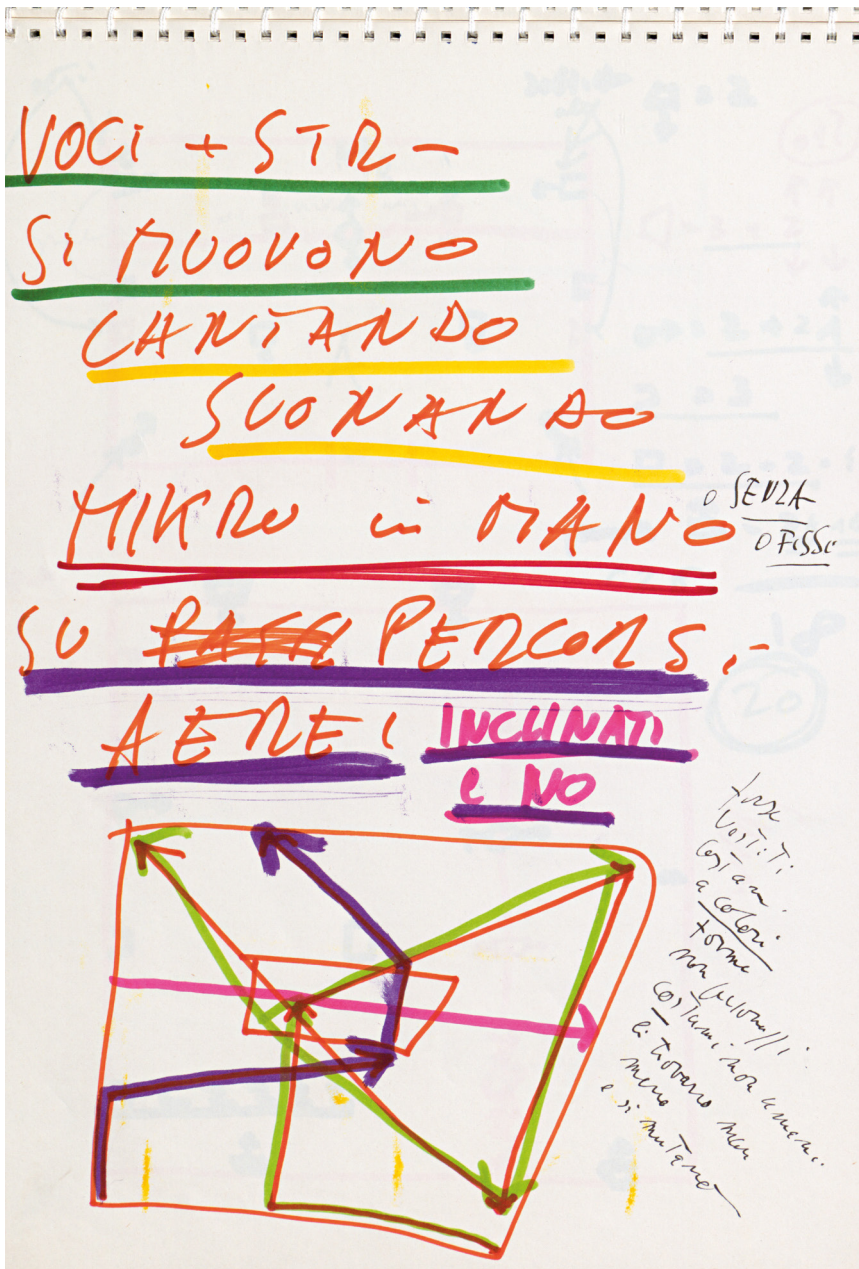 VOCI + STR -
SI MUOVONO
CANTANDO
SUONANDO
MIKRO in MANO
o SENZA
o FISSI
SU PERCORSI -
AEREI INCLINATI
e NO
forse
vestiti
costumi
a colori
forme
non
costumi non umani
li trovano man
mano
e si mutano